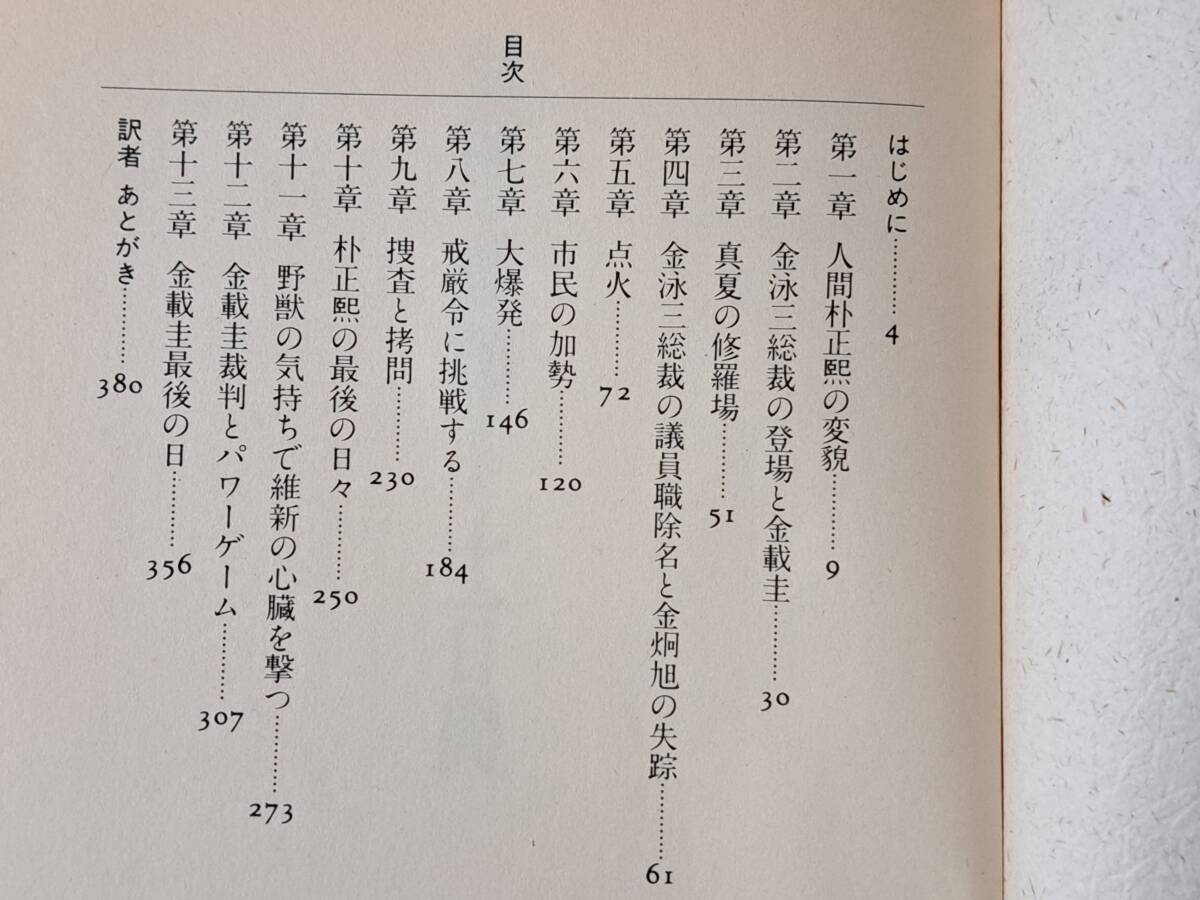 目次
はじめに…………4
第一章 人間朴正熙の変貌…………9
第二章 金泳三総裁の登場と金載圭…………30
第三章 真夏の修羅場…………51
第四章 金泳三総裁の議員職除名と金炯旭の失踪…………61
第五章 点火…………72
第六章 市民の加勢…………120
第七章 大爆発…………146
第八章 戒厳令に挑戦する…………184
第九章 捜査と拷問…………230
第十章 朴正熙の最後の日々…………250
第十一章 野獣の気持ちで維新の心臓を撃つ…………273
第十二章 金載圭裁判とパワーゲーム…………307
第十三章 金載圭最後の日…………356
訳者 あとがき…………380